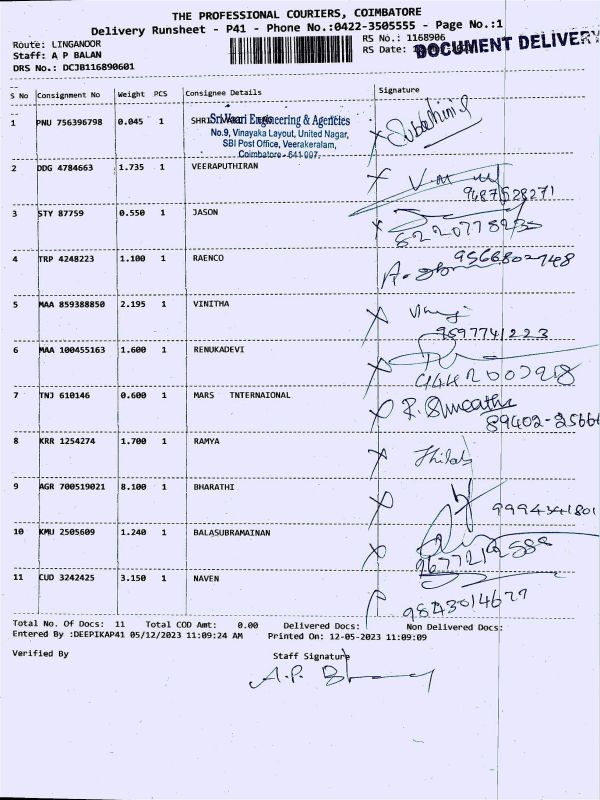 THE PROFESSIONAL COURIERS, COIMBATORE
Delivery Runsheet - P41 - Phone No.:0422-3505555 - Page No.:1
Route: LINGANOOR
Staff: A P BALAN
DRS No.: DCJB116890601
RS No.: 1168906
RS Date:
DOCUMENT DELIVERY
S No Consignment No Weight PCS Consignee Details Signature
1 PNU 756396798 0.045 1 SHRI
Sri Vaari Engineering & Agencies
No.9, Vinayaka Layout, United Nagar,
SBI Post Office, Veerakeralam,
Coimbatore - 641 007.
2 DDG 4784663 1.735 1 VEERAPUTHIRAN
9487528271
3 STY 87759 0.550 1 JASON
4 TRP 4248223 1.100 1 RAENCO
9566802748
5 MAA 859388850 2.195 1 VINITHA
9597741223
6 MAA 100455163 1.600 1 RENUKADEVI
9442007928
7 TNJ 610146 0.600 1 MARS TNTERNAIONAL
89402-25666
8 KRR 1254274 1.700 1 RAMYA
9 AGR 700519021 8.100 1 BHARATHI
9994341801
10 KMU 2505609 1.240 1 BALASUBRAMAINAN
11 CUD 3242425 3.150 1 NAVEN
Total No. Of Docs: 11 Total COD Amt: 0.00 Delivered Docs: Non Delivered Docs:
Entered By :DEEPIKAP41 05/12/2023 11:09:24 AM Printed On: 12-05-2023 11:09:09
Verified By Staff Signature